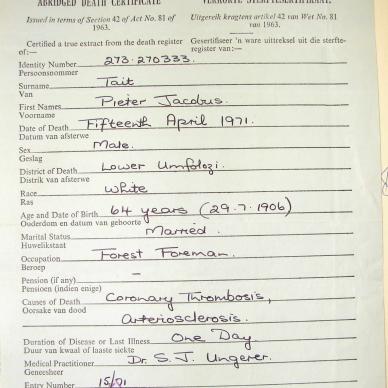 ABRIDGED DEATH CERTIFICATE
VERKORTE STERFTESERTIFIKAAT.
Issued in terms of Section 42 of Act No. 81 of 1963.
Uitgereik kragtens artikel 42 van Wet No. 81 van 1963.
Certified a true extract from the death register of:—
Gesertifiseer 'n ware uittreksel uit die sterfteregister van:—
Identity Number 273·270333.
Persoonsnommer
Surname Tait
Van
First Names Pieter Jacobus.
Voorname
Date of Death Fifteenth April 1971.
Datum van afsterwe
Sex Male.
Geslag
District of Death Lower Umfolozi.
Distrik van afsterwe
Race White
Ras
Age and Date of Birth 64 years (29.7.1906)
Ouderdom en datum van geboorte
Marital Status Married.
Huwelikstaat
Occupation Forest Foreman.
Beroep
Pension (if any) —
Pensioen (indien enige)
Causes of Death Coronary Thrombosis,
Oorsake van dood
Arteriosclerosis.
Duration of Disease or Last Illness One Day
Duur van kwaal of laaste siekte
Medical Practitioner Dr. S. J. Ungerer.
Geneesheer
Entry Number 15/71